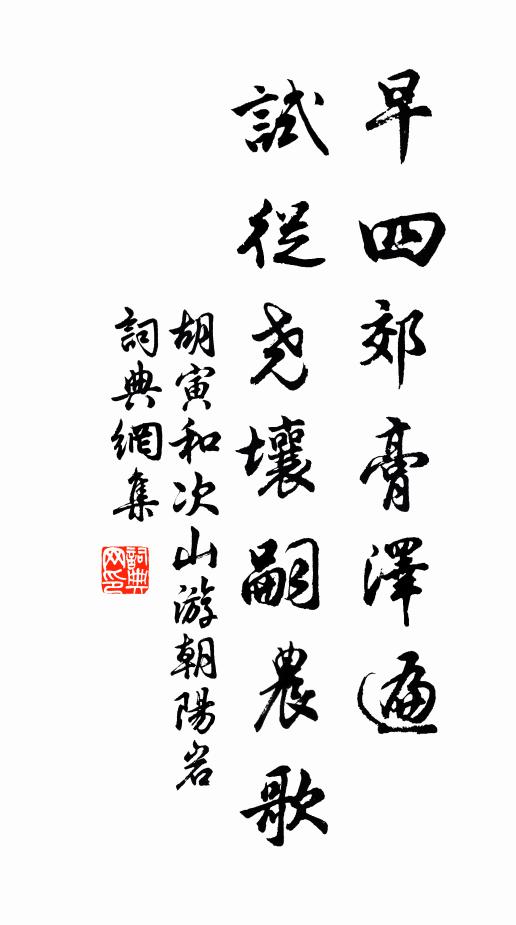 早四郊膏澤遍
試從尧壤嗣農歌
胡寅和次山游朝陽岩
詞典網集
詞典網印